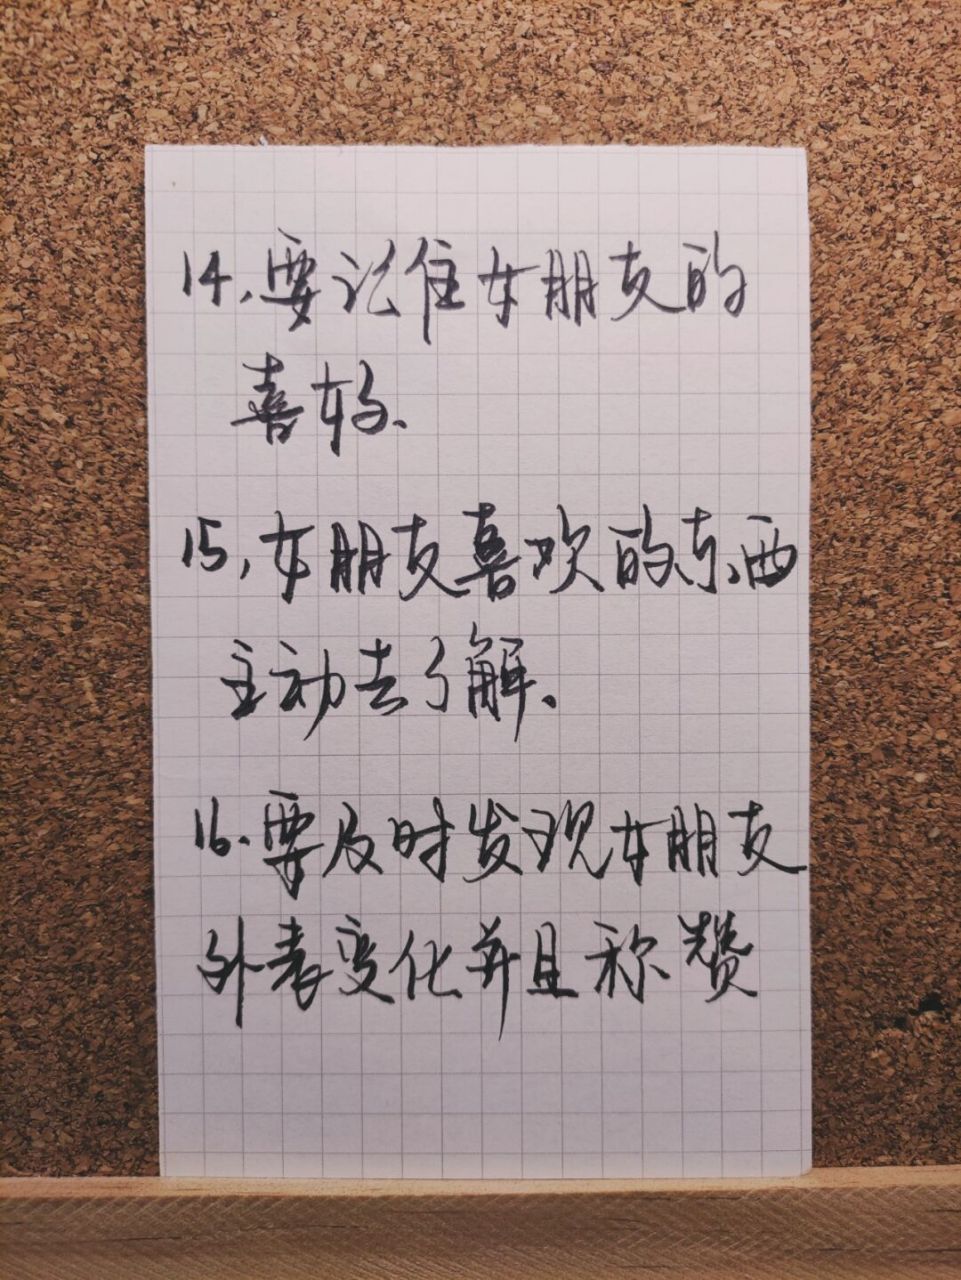 14、要记住女朋友的
喜好、
15、女朋友喜欢的东西
主动去了解、
16、要及时发现女朋友
外表变化并且称赞